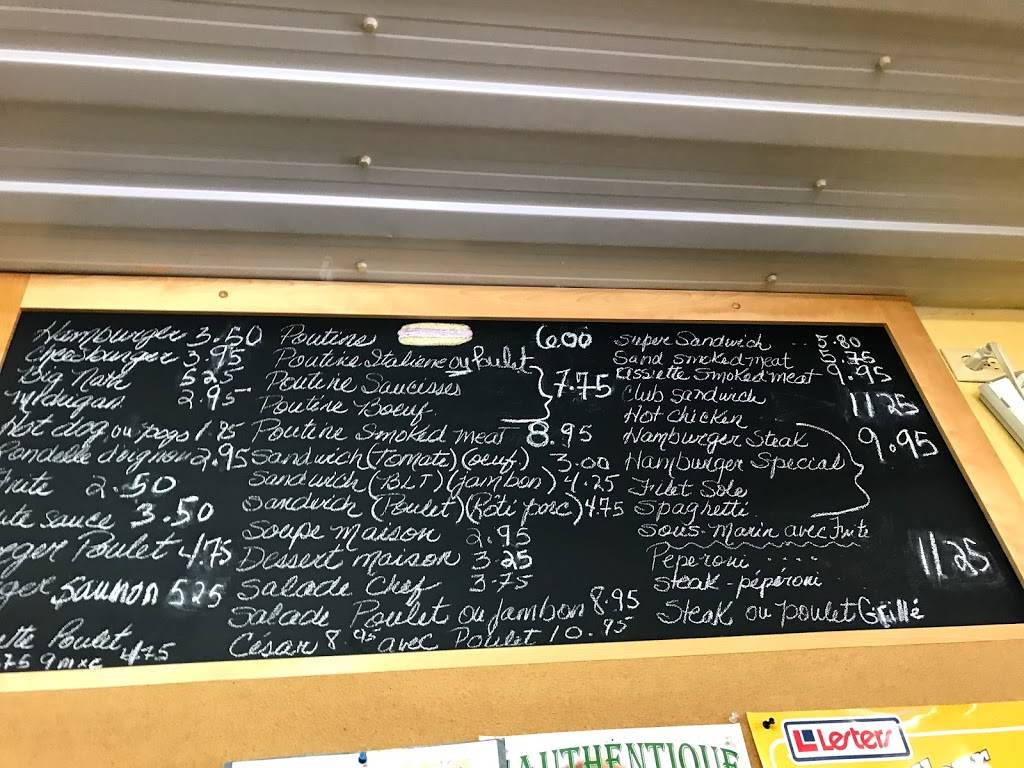 Hamburger 3.50
Cheesburger 3.95
Big Nath 5.25
Michigan 2.95
Hot dog ou pogo 1.75
Rondelle d'oignon 2.95
Frite 2.50
sauce 3.50
Poulet 4.75
Saumon 5.25
Poulet 4.75
Poutine 6.00
Poutine Italiene ou Poulet
Poutine Saucisses 7.75
Poutine Boeuf
Poutine Smoked meat 8.95
Sandwich (Tomate) (oeuf) 3.00
Sandwich (BLT) (jambon) 4.25
Sandwich (Poulet) (Rôti porc) 4.75
Soupe Maison 2.95
Dessert Maison 3.25
Salade Chef 3.75
Salade Poulet ou Jambon 8.95
César 8.95 avec Poulet 10.95
Super Sandwich .. 5.80
Sand Smoked meat 5.75
Assiette Smoked meat 9.95
Club Sandwich 11.25
Hot Chicken
Hamburger Steak 9.95
Hamburger Special
Filet Sole
Spaghetti
Sous-Marin avec Frite
Peperoni
Steak - péperoni 11.25
Steak ou poulet Grillé
AUTHENTIQUE
Lesters